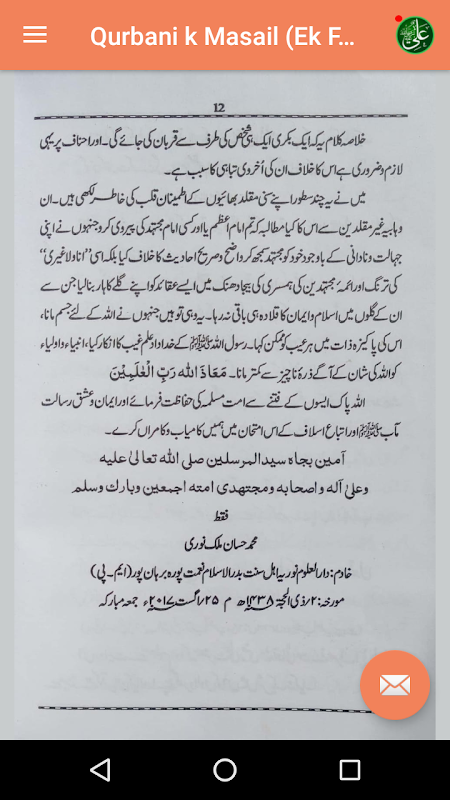 Qurbani k Masail (Ek F...
12
خلاصہ کلام یہ کہ ایک بکری ایک ہی شخص کی طرف سے قربان کی جائے گی۔ اور احناف پر یہی
لازم و ضروری ہے اس کا خلاف ان کی اُخروی تباہی کا سبب ہے۔
میں نے یہ چند سطور اپنے سنی مقلد بھائیوں کے اطمینان قلب کی خاطر لکھی ہیں۔ ان
وہابیہ غیر مقلدین سے اس کا کیا مطالبہ کہ تم امام اعظم یا اور کسی امام مجتہد کی پیروی کرو جنہوں نے اپنی
جہالت و نادانی کے باوجود خود کو مجتہد سمجھ کر واضح و صریح احادیث کا خلاف کیا بلکہ اسی ’’انا ولا غیری‘‘
کی ترنگ اور ائمہ مجتہدین کی ہمسری کی بیجا دھنک میں ایسے عقائد کو اپنے گلے کا ہار بنا لیا جن سے
ان کے گلوں میں اسلام و ایمان کا قلادہ ہی باقی نہ رہا۔ یہ وہی تو ہیں جنہوں نے اللہ کے لئے جسم مانا،
اس کی پاکیزہ ذات میں ہر عیب کو ممکن کہا۔ رسول اللہ ﷺ کے خداداد علم غیب کا انکار کیا، انبیاء و اولیاء
کو اللہ کی شان کے آگے ذرۂ ناچیز سے کمتر مانا۔ مَعَاذَ اللّٰہ رَبِّ الْعٰلَمِیْنَ
اللہ پاک ایسوں کے فتنے سے امت مسلمہ کی حفاظت فرمائے اور ایمان و عشق رسالت
مآب ﷺ اور اتباع اسلاف کے اس امتحان میں ہمیں کامیاب و کامراں کرے۔
آمین بجاہ سیدالمرسلین صلی اللہ تعالیٰ علیہ
وعلیٰ آلہ واصحابہ ومجتهدی امتہ اجمعین وبارك وسلم
فقط
محمد حسان ملک نوری
خادم: دارالعلوم نوریہ اہل سنت بدرالاسلام نعمت پورہ برہان پور (ایم۔پی)
مورخہ: ۲/ذی الحجۃ ۱۴۳۸ھ م ۲۵/اگست ۲۰۱۷ء جمعہ مبارکہ